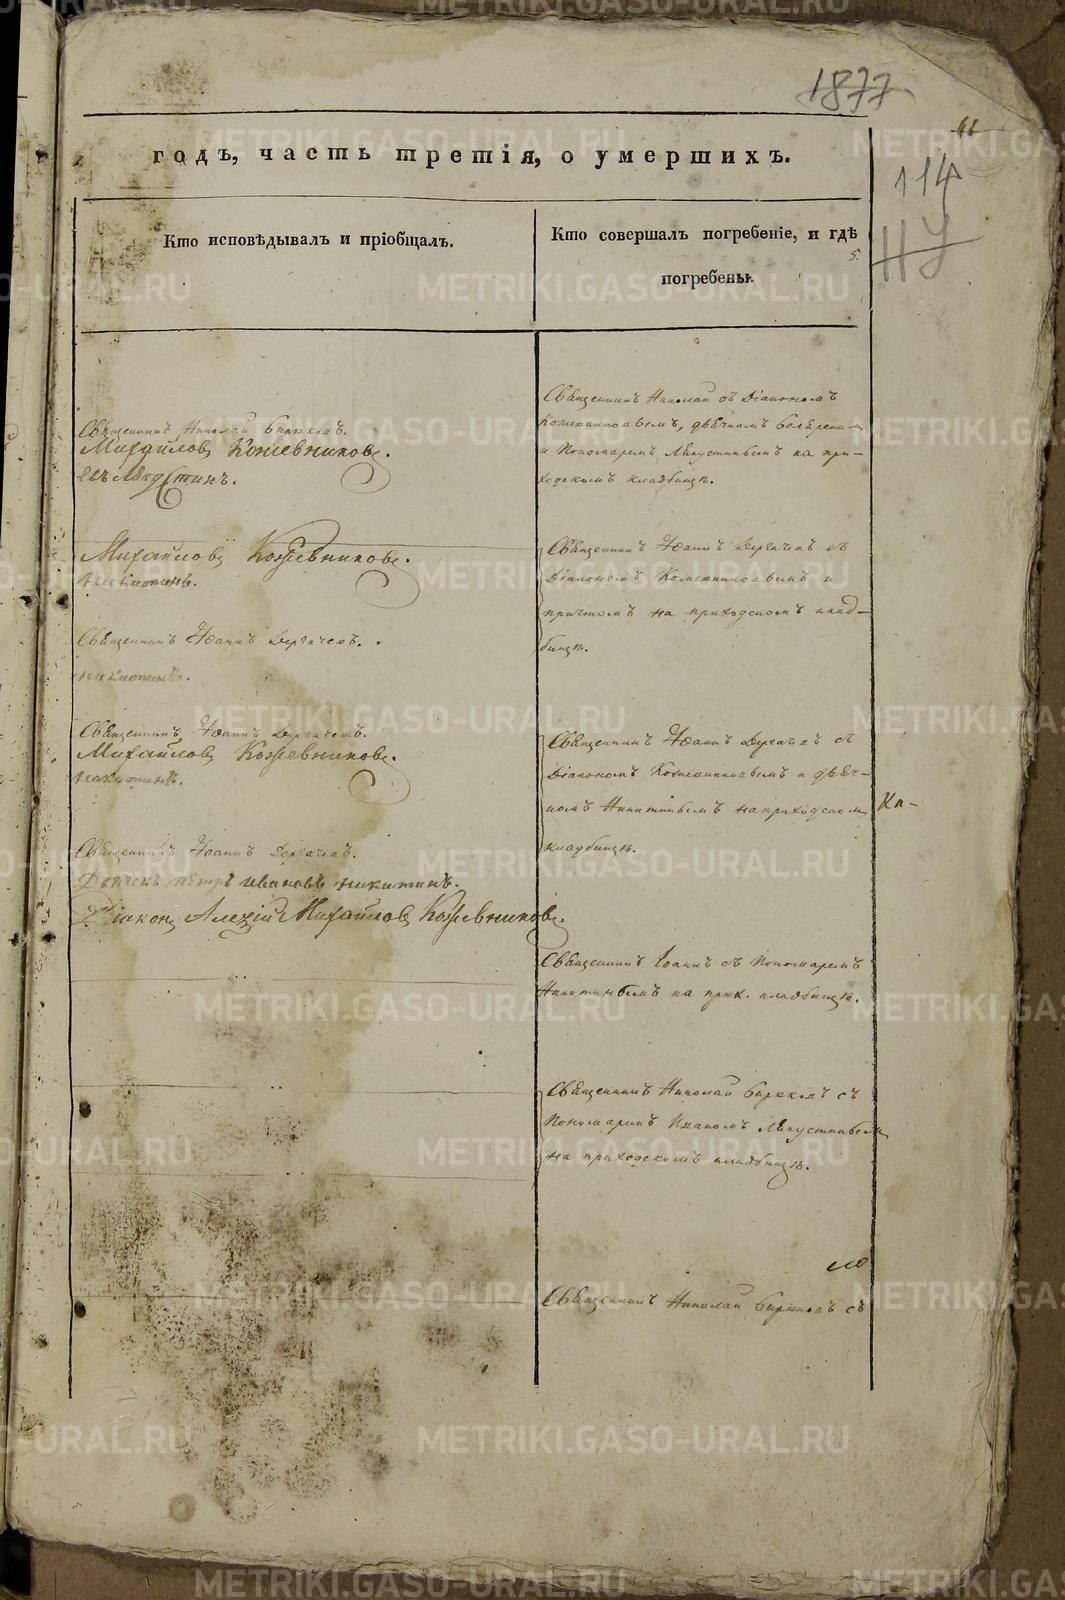 1877
66
114
годъ, часть третія, о умершихъ.
Кто исповѣдывалъ и пріобщалъ.
Кто совершалъ погребеніе, и гдѣ
погребены.
Священникъ Николай Бирюковъ.
Михайловъ Кожевниковъ.
Августинъ.
Священникъ Николай съ Діакономъ
Кожевниковымъ, дьячкомъ
и Пономаремъ Августиновымъ на при-
ходскомъ кладбищѣ.
Михайловъ Кожевниковъ.
никитинъ.
Священникъ Іоаннъ Дергачевъ съ
Діакономъ Кожевниковымъ и
причтомъ на приходскомъ клад-
бищѣ.
Священникъ Іоаннъ Дергачевъ.
никитинъ.
Священникъ Іоаннъ Дергачевъ.
Михайловъ Кожевниковъ.
никитинъ.
Священникъ Іоаннъ Дергачевъ съ
Діакономъ Кожевниковымъ и дьяч-
комъ Никитинымъ на приходскомъ
кладбищѣ.
Кп-
Священникъ Іоаннъ Дергачевъ.
Дьячекъ петръ ивановъ никитинъ.
Діаконъ Алексій Михайловъ Кожевниковъ.
Священникъ Іоаннъ съ Пономаремъ
Никитинымъ на прих. кладбищѣ.
Священникъ Николай Бирюковъ съ
Пономаремъ Иваномъ Августиновымъ
на приходскомъ кладбищѣ.
Священникъ Николай Бирюковъ съ
METRIKI.GASO-URAL.RU